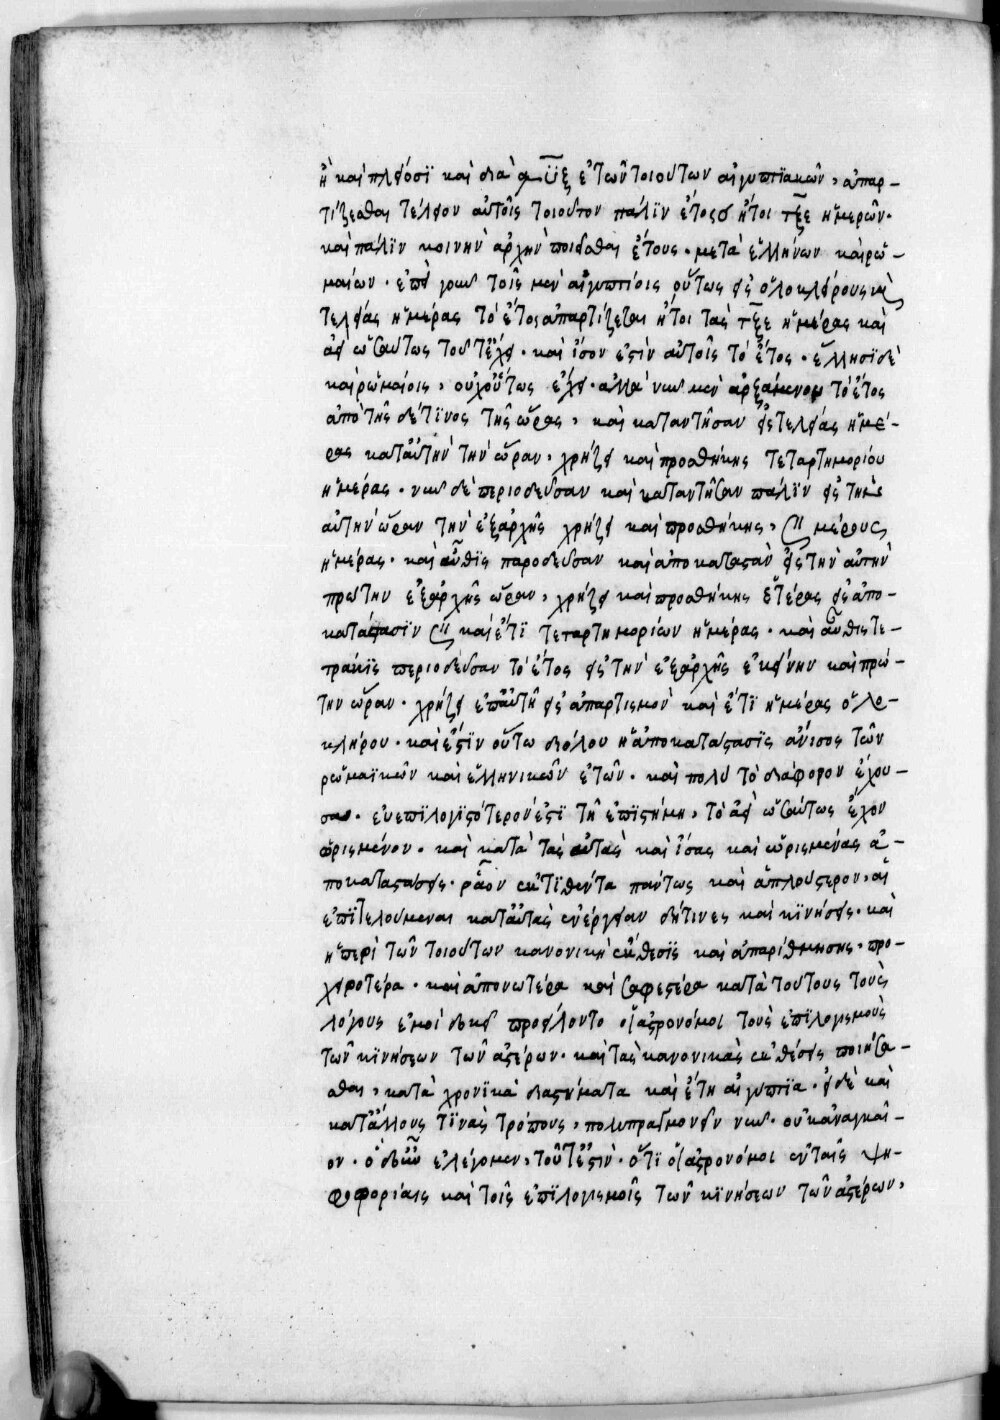 ἢ καὶ πλείοσϊ καὶ διὰ ͵αϋξ ἐτῶν τοιούτων αἰγυπτϊακῶν, ἀπαρ-
τίζεσθαι τέλειον αὐτοῖς τοιοῦτον πάλϊν ἔτος ἤτοι τξε ἡμερῶν.
καὶ πάλϊν κοινὴν ἀρχὴν ποιεῖσθαι ἔτους. μετὰ ἑλλήνων καὶ ῥω-
μαίων. ἐπεὶ γοῦν τοῖς μὲν αἰγυπτίοις οὕτως εἰς ὁλοκλήρους καὶ
τελείας ἡμέρας τὸ ἔτος ἀπαρτίζεται ἤτοι τὰς τξε ἡμέρας καὶ
ἀεὶ ὡσαύτως τοῦτ' ἔχει. καὶ ἴσον ἐστὶν αὐτοῖς τὸ ἔτος. ἕλλησϊ δὲ
καὶ ῥωμαίοις, οὐχ οὕτως ἔχει. ἀλλὰ νῦν μὲν ἀρξάμενον τὸ ἔτος
ἀπὸ τῆς δέ τϊνος τῆς ὥρας, καὶ καταντῆσαν εἰς τελείας ἡμέ-
ρας κατ' αὐτὴν τὴν ὥραν, χρήζει καὶ προσθήκης τεταρτημορίου
ἡμέρας. νῦν δὲ περιοδεῦσαν καὶ καταντῆσαν πάλϊν εἰς τὴν
αὐτὴν ὥραν τὴν ἐξαρχῆς χρήζει καὶ προσθήκης, μέρους
ἡμέρας. καὶ αὖθϊς παροδεῦσαν καὶ ἀποκαταστὰν εἰς τὴν αὐτὴν
πρώτην ἐξαρχῆς ὥραν, χρήζει καὶ προσθήκης ἑτέρας εἰς ἀπο-
κατάστασϊν καὶ ἔτϊ τεταρτημορίων ἡμέρας. καὶ αὖθις τε-
τράκϊς περιοδεῦσαν τὸ ἔτος εἰς τὴν ἐξαρχῆς ἐκείνην καὶ πρώ-
την ὥραν. χρήζει ἐπ' αὐτῇ εἰς ἀπαρτισμὸν καὶ ἔτϊ ἡμέρας ὁλο-
κλήρου. καὶ ἔστϊν οὕτω διόλου ἡ ἀποκατάστασϊς ἄνισος τῶν
ῥωμαϊκῶν καὶ ἑλληνικῶν ἐτῶν. καὶ πολὺ τὸ διάφορον ἔχου-
σα. εὐεπϊλογϊστότερον ἐστὶ τῇ ἐπϊστήμῃ, τὸ ἀεὶ ὡσαύτως ἔχον
ὡρισμένον. καὶ κατὰ τὰς αὐτὰς καὶ ἴσας καὶ ὡρισμένας ἀ-
ποκαταστάσεις. ῥᾷον ἐκτϊθέντα πάντως καὶ ἁπλούστερον, αἱ
ἐπϊτελούμεναι κατ' αὐτὰς ἐνέργειαν δήτινες καὶ κϊνήσεις. καὶ
ἡ περὶ τῶν τοιούτων κανονικὴ ἔκθεσϊς καὶ ἀπαρίθμησης, προ-
χειροτέρα. καὶ ἀπονωτέρα καὶ σαφεστέρα κατὰ τούτους τοὺς
λόγους ἐμοὶ δοκεῖ προείλοντο οἱ ἀστρονόμοι τοὺς ἐπϊλογισμοὺς
τῶν κϊνήσεων τῶν ἀστέρων. καὶ τὰς κανονικὰς ἐκθέσεις ποιήσα-
σθαι, κατὰ χρονϊκὰ διαστήματα καὶ ἔτη αἰγύπτϊα. εἰ δὲ καὶ
κατ' ἄλλους τϊνὰς τρόπους, πολυπραγμονεῖν νῦν. οὐκ ἀναγκαῖ-
ον. ὁ δ' οὖν ἐλέγομεν, τοῦτ' ἔστιν. ὅτϊ οἱ ἀστρονόμοι ἐν ταῖς ψη-
φηφορίαις καὶ τοῖς ἐπϊλογισμοῖς τῶν κϊνήσεων τῶν ἀστέρων,